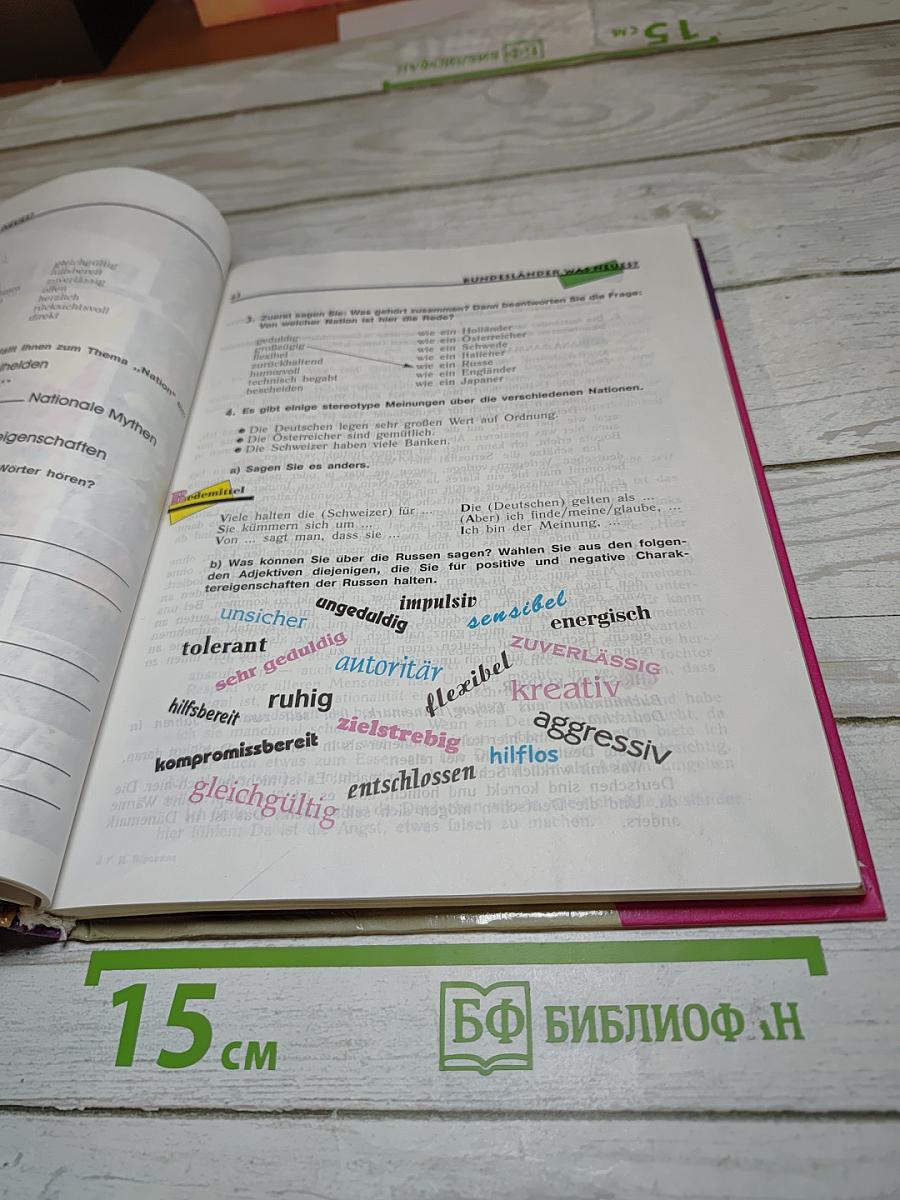 15 см
БФ БИБЛИОФАН
gleichgültig
hilfsbereit
zuverlässig
offen
herzlich
rücksichtsvoll
direkt
Ihnen zum Thema „Nation"
Nationale Mythen
eigenschaften
Wörter hören?
BUNDESLÄNDER, WAS NEUES?
3. Zuerst sagen Sie: Was gehört zusammen? Dann beantworten Sie die Frage:
Von welcher Nation ist hier die Rede?
geduldig
großzügig
flexibel
zurückhaltend
humorvoll
technisch begabt
bescheiden
wie ein Holländer
wie ein Österreicher
wie ein Schwede
wie ein Italiener
wie ein Russe
wie ein Engländer
wie ein Japaner
4. Es gibt einige stereotype Meinungen über die verschiedenen Nationen.
• Die Deutschen legen sehr großen Wert auf Ordnung.
• Die Österreicher sind gemütlich.
• Die Schweizer haben viele Banken.
a) Sagen Sie es anders.
Redemittel
Viele halten die (Schweizer) für ...
Sie kümmern sich um ...
Von ... sagt man, dass sie ...
Die (Deutschen) gelten als ...
(Aber) ich finde/meine/glaube, ...
Ich bin der Meinung, ...
b) Was können Sie über die Russen sagen? Wählen Sie aus den folgen-
den Adjektiven diejenigen, die Sie für positive und negative Charak-
tereigenschaften der Russen halten.
unsicher
ungeduldig
impulsiv
sensibel
energisch
tolerant
sehr geduldig
autoritär
flexibel
ZUVERLÄSSIG
hilfsbereit
ruhig
kreativ
kompromissbereit
zielstrebig
aggressiv
hilflos
gleichgültig
entschlossen
15 см
БФ БИБЛИОФ АН